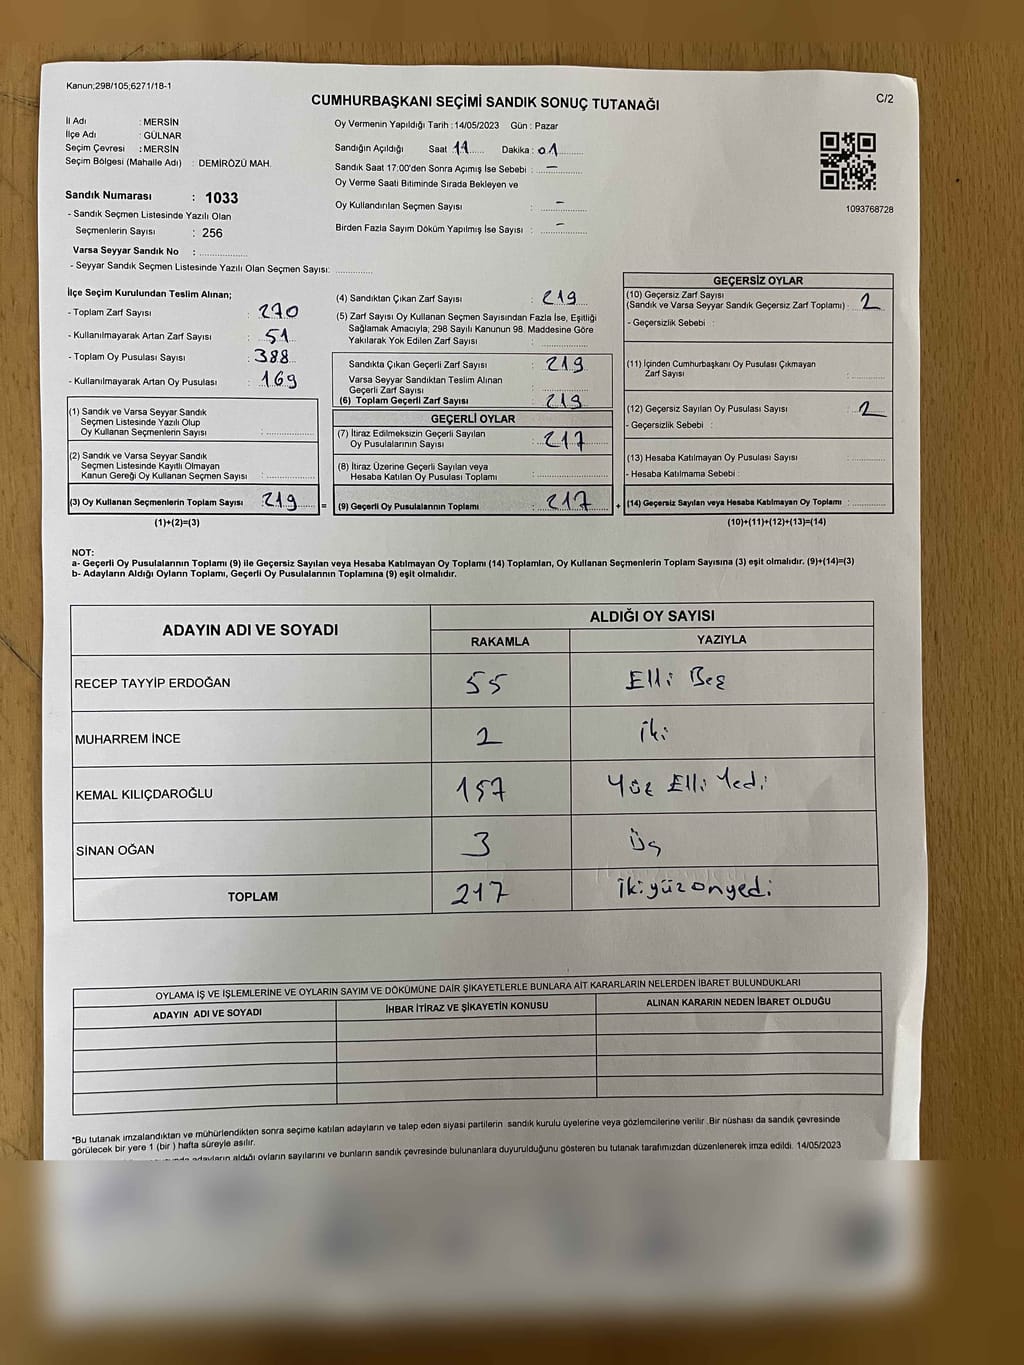 Kanun;298/105;6271/18-1
C/2
CUMHURBAŞKANI SEÇİMİ SANDIK SONUÇ TUTANAĞI
İl Adı : MERSİN
İlçe Adı : GÜLNAR
Seçim Çevresi : MERSİN
Seçim Bölgesi (Mahalle Adı) : DEMİRÖZÜ MAH.
Sandık Numarası : 1033
- Sandık Seçmen Listesinde Yazılı Olan
Seçmenlerin Sayısı : 256
Varsa Seyyar Sandık No :
- Seyyar Sandık Seçmen Listesinde Yazılı Olan Seçmen Sayısı:
Oy Vermenin Yapıldığı Tarih : 14/05/2023 Gün : Pazar
Sandığın Açıldığı Saat 11 Dakika : 01
Sandık Saat 17:00'den Sonra Açımış İse Sebebi : -
Oy Verme Saati Bitiminde Sırada Bekleyen ve
Oy Kullandırılan Seçmen Sayısı : -
Birden Fazla Sayım Döküm Yapılmış İse Sayısı : -
1093768728
İlçe Seçim Kurulundan Teslim Alınan;
- Toplam Zarf Sayısı : 270
- Kullanılmayarak Artan Zarf Sayısı : 51
- Toplam Oy Pusulası Sayısı : 388
- Kullanılmayarak Artan Oy Pusulası : 169
(1) Sandık ve Varsa Seyyar Sandık
Seçmen Listesinde Yazılı Olup
Oy Kullanan Seçmenlerin Sayısı :
(2) Sandık ve Varsa Seyyar Sandık
Seçmen Listesinde Kayıtlı Olmayan
Kanun Gereği Oy Kullanan Seçmen Sayısı :
(3) Oy Kullanan Seçmenlerin Toplam Sayısı : 219 =
(1)+(2)=(3)
(4) Sandıktan Çıkan Zarf Sayısı : 219
(5) Zarf Sayısı Oy Kullanan Seçmen Sayısından Fazla İse, Eşitliği
Sağlamak Amacıyla; 298 Sayılı Kanunun 98. Maddesine Göre
Yakılarak Yok Edilen Zarf Sayısı :
Sandıkta Çıkan Geçerli Zarf Sayısı : 219
Varsa Seyyar Sandıktan Teslim Alınan
Geçerli Zarf Sayısı :
(6) Toplam Geçerli Zarf Sayısı : 219
GEÇERLİ OYLAR
(7) İtiraz Edilmeksizin Geçerli Sayılan
Oy Pusulalarının Sayısı : 217
(8) İtiraz Üzerine Geçerli Sayılan veya
Hesaba Katılan Oy Pusulası Toplamı :
(9) Geçerli Oy Pusulalarının Toplamı : 217 +
GEÇERSİZ OYLAR
(10) Geçersiz Zarf Sayısı
(Sandık ve Varsa Seyyar Sandık Geçersiz Zarf Toplamı) : 2
- Geçersizlik Sebebi :
(11) İçinden Cumhurbaşkanı Oy Pusulası Çıkmayan
Zarf Sayısı :
(12) Geçersiz Sayılan Oy Pusulası Sayısı : 2
- Geçersizlik Sebebi :
(13) Hesaba Katılmayan Oy Pusulası Sayısı :
- Hesaba Katılmama Sebebi :
(14) Geçersiz Sayılan veya Hesaba Katılmayan Oy Toplamı :
(10)+(11)+(12)+(13)=(14)
NOT:
a- Geçerli Oy Pusulalarının Toplamı (9) ile Geçersiz Sayılan veya Hesaba Katılmayan Oy Toplamı (14) Toplamları, Oy Kullanan Seçmenlerin Toplam Sayısına (3) eşit olmalıdır. (9)+(14)=(3)
b- Adayların Aldığı Oyların Toplamı, Geçerli Oy Pusulalarının Toplamına (9) eşit olmalıdır.
ADAYIN ADI VE SOYADI
ALDIĞI OY SAYISI
RAKAMLA YAZIYLA
RECEP TAYYİP ERDOĞAN 55 Elli Beş
MUHARREM İNCE 2 İki
KEMAL KILIÇDAROĞLU 157 Yüz Elli Yedi
SİNAN OĞAN 3 Üç
TOPLAM 217 İkiyüzonyedi
OYLAMA İŞ VE İŞLEMLERİNE VE OYLARIN SAYIM VE DÖKÜMÜNE DAİR ŞİKAYETLERLE BUNLARA AİT KARARLARIN NELERDEN İBARET BULUNDUKLARI
ADAYIN ADI VE SOYADI İHBAR İTİRAZ VE ŞİKAYETİN KONUSU ALINAN KARARIN NEDEN İBARET OLDUĞU
*Bu tutanak imzalandıktan ve mühürlendikten sonra seçime katılan adayların ve talep eden siyasi partilerin sandık kurulu üyelerine veya gözlemcilerine verilir .Bir nüshası da sandık çevresinde
görülecek bir yere 1 (bir ) hafta süreyle asılır.
adayların aldığı oyların sayılarını ve bunların sandık çevresinde bulunanlara duyurulduğunu gösteren bu tutanak tarafımızdan düzenlenerek imza edildi. 14/05/2023